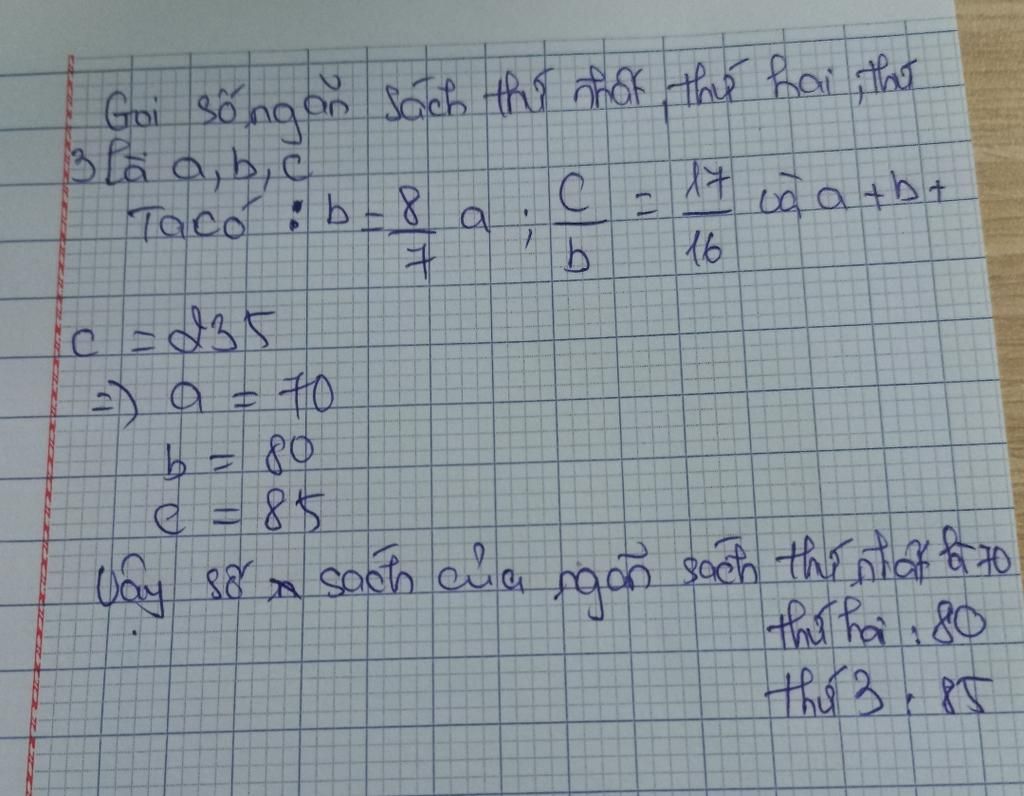 Gọi số ngăn sách thứ nhất, thứ hai, thứ
3 là a, b, c
Ta có : b = 8/7 a ; c/b = 17/16 và a + b +
c = 235
=> a = 70
b = 80
c = 85
Vậy số sách của ngăn sách thứ nhất là 70
thứ hai : 80
thứ 3 : 85